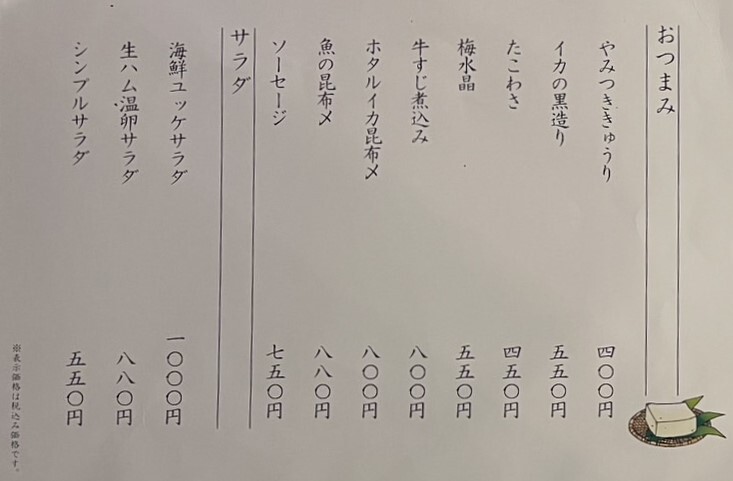 おつまみ
やみつききゅうり 四〇〇円
イカの黒造り 五五〇円
たこわさ 四五〇円
梅水晶 五五〇円
牛すじ煮込み 八〇〇円
ホタルイカ昆布〆 八〇〇円
魚の昆布〆 八八〇円
ソーセージ 七五〇円
サラダ
海鮮ユッケサラダ 一〇〇〇円
生ハム温卵サラダ 八八〇円
シンプルサラダ 五五〇円
※表示価格は税込み価格です。